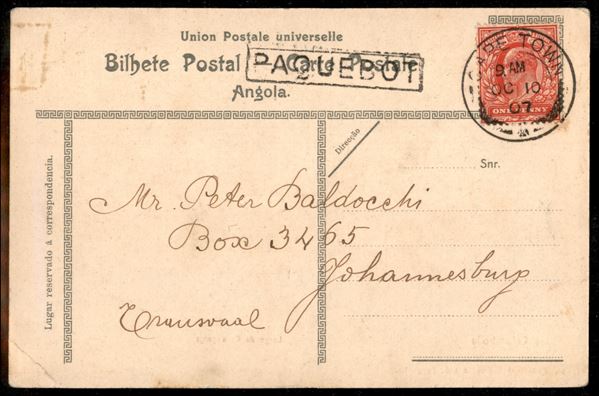 Union Postale universelle
Bilhete Postal — Carte Postale
PAQUEBOT
Angola.
CAPE TOWN
9 AM
OC 10
07
ONE PENNY
Direcção
Snr.
Lugar reservado á correspondencia.
Mr. Peter Baldocchi
Box 3465
Johannesburg
Transvaal